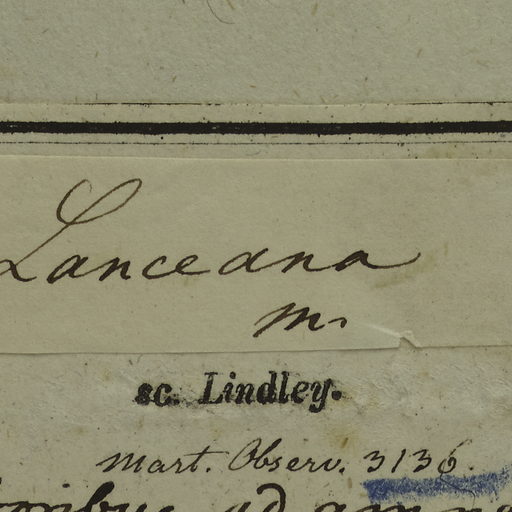 Lanceana
m.
sc. Lindley.
Mart. Observ. 3136.
ad